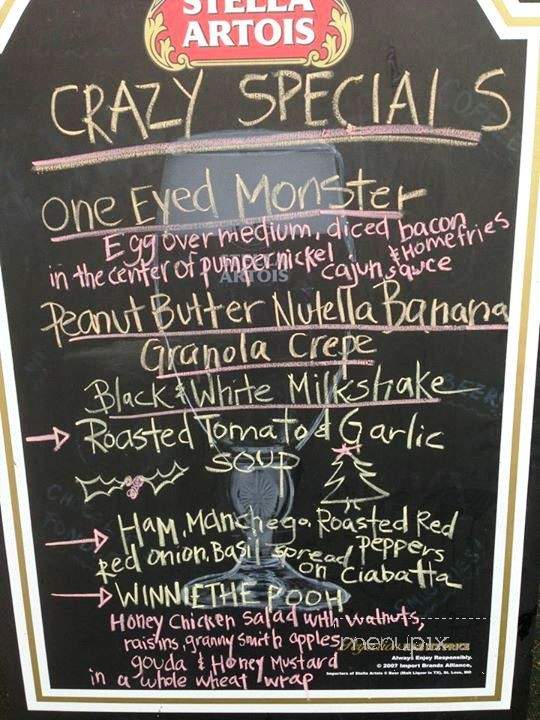 STELLA
ARTOIS
CRAZY SPECIALS
One Eyed Monster
Egg over medium, diced bacon
in the center of pumpernickel & Homefries
cajun sauce
ARTOIS
Peanut Butter Nutella Banana
Granola Crepe
Black & White Milkshake
→ Roasted Tomato & Garlic
SOUP
→ Ham, Manchego, Roasted Red
Red onion, Basil spread Peppers
on Ciabatta
→ WINNIE THE POOH
Honey Chicken Salad with walnuts,
raisins, granny smith apples,
gouda & Honey Mustard
in a whole wheat wrap
menupix
Always Enjoy Responsibly.
© 2007 Import Brands Alliance,
Importers of Stella Artois® Beer (Malt Liquor in TX), St. Louis, MO